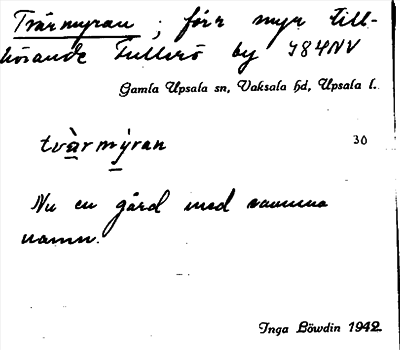 Tvärmyran ; förr myr till-
hörande Fullerö by I84NV
Gamla Upsala sn, Vaksala hd, Upsala l.
tvàrmýran
30
Nu en gård med samma
namn.
Inga Löwdin 1942